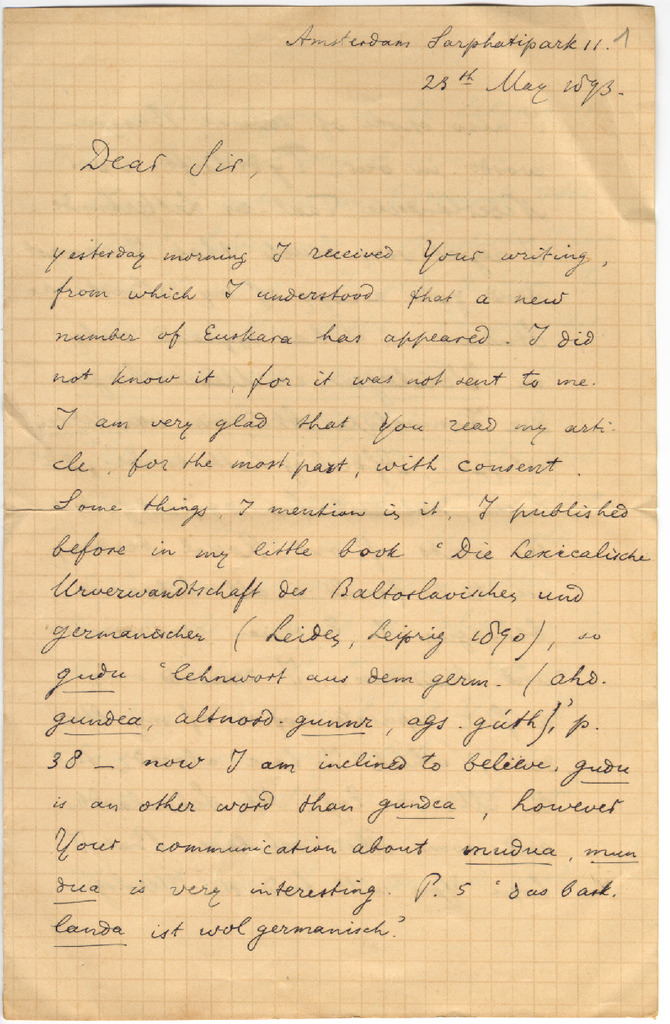 Amsterdam Sarphatipark 11. 1
23th May 1893.
Dear Sir,
yesterday morning I received Your writing,
from which I understood that a new
number of Euskara has appeared. I did
not know it, for it was not sent to me.
I am very glad that You read my arti-
cle, for the most part, with consent.
Some things, I mention in it, I published
before in my little book "Die Lexicalische
Urverwandtschaft des Baltoslavischen und
germanischen (Leiden, Leipzig 1890), so
gudu "lehnwort aus dem germ. (ahd.
gundea, altnord. gunnr, ags. gúth)", p.
38 — now I am inclined to believe, gudu
is an other word than gundea, however
Your communication about mudua, mun
dua is very interesting. P. 5 "das bask.
landa ist wol germanisch."